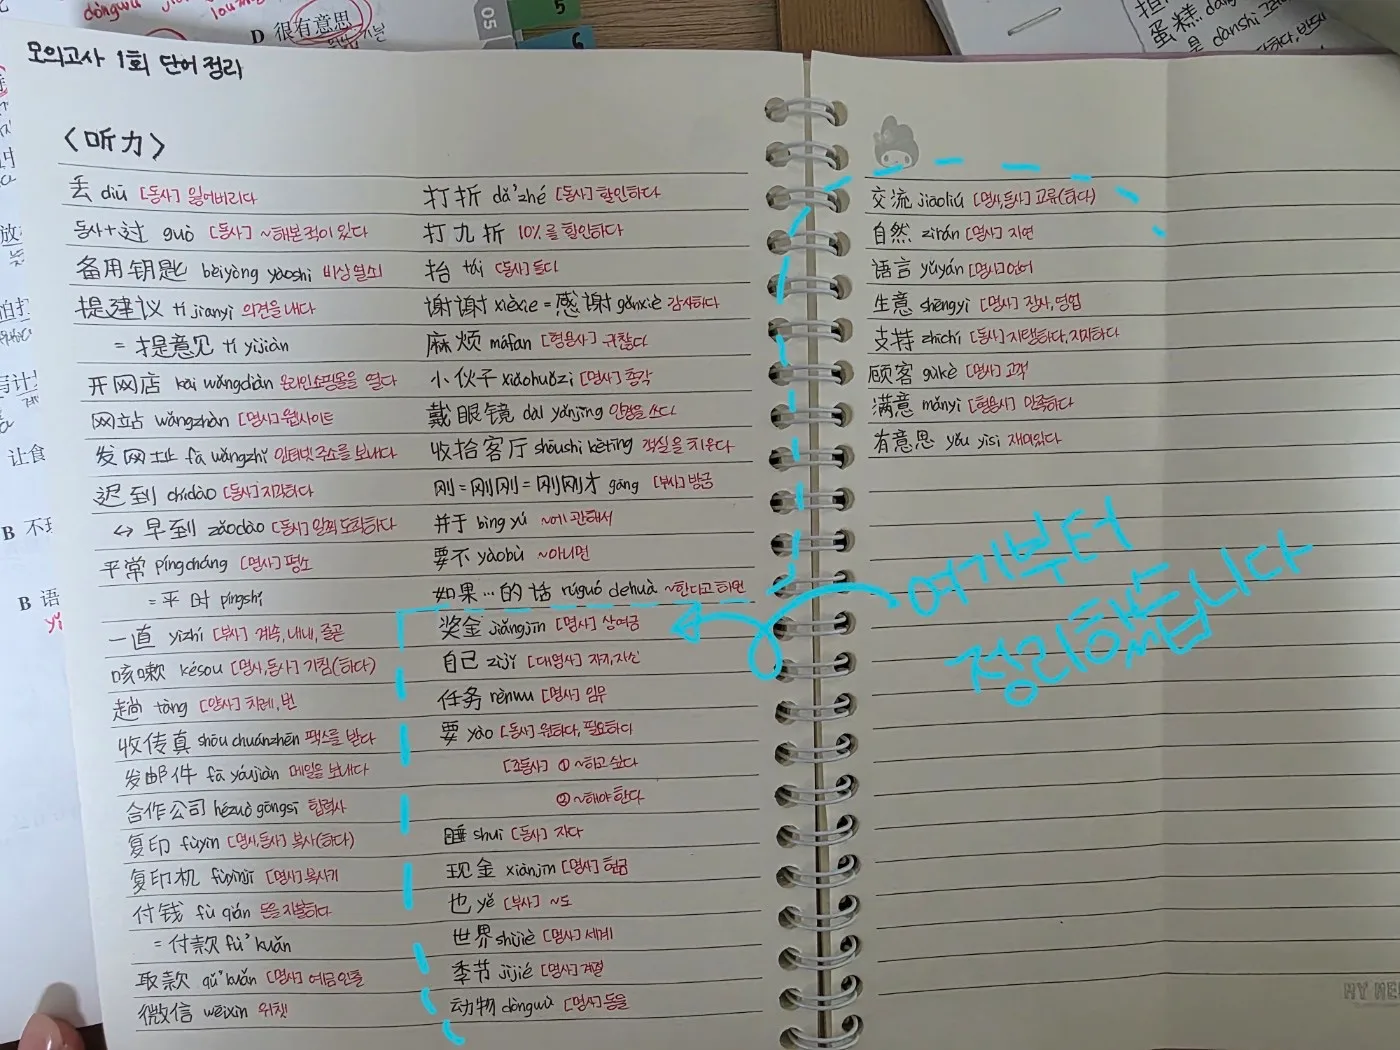 D 很有意思
05
5
6
모의고사 1회 단어정리
<听力>
丢 diū [동사] 잃어버리다
동사+过 guò [동사] ~해본적이 있다
备用钥匙 bèiyòng yàoshi 비상열쇠
提建议 tí jianyì 의견을 내다
= 提意见 tí yìjiàn
开网店 kāi wǎngdiàn 온라인쇼핑몰을 열다
网站 wǎngzhàn [명사] 웹사이트
发网址 fā wǎngzhǐ 인터넷주소를 보내다
迟到 chídào [동사] 지각하다
↔ 早到 zǎodào [동사] 일찍 도착하다
平常 píngcháng [명사] 평소
= 平时 píngshí
一直 yìzhí [부사] 계속, 내내, 줄곧
咳嗽 késou [명사,동사] 기침(하다)
趟 tàng [양사] 차례, 번
收传真 shōu chuánzhēn 팩스를 받다
发邮件 fā yóujiàn 메일을 보내다
合作公司 hézuò gōngsī 협력사
复印 fùyìn [명사,동사] 복사(하다)
复印机 fùyìnjī [명사] 복사기
付钱 fù qián 돈을 지불하다
= 付款 fù'kuǎn
取款 qǔ'kuǎn [명사] 예금인출
微信 wēixìn 위챗
打折 dǎ'zhé [동사] 할인하다
打九折 10%를 할인하다
抬 tái [동사] 들다
谢谢 xièxie = 感谢 gǎnxiè 감사하다
麻烦 máfan [형용사] 귀찮다
小伙子 xiǎohuǒzi [명사] 총각
戴眼镜 dài yǎnjìng 안경을 쓰다
收拾客厅 shōushi kètīng 객실을 치운다
刚=刚刚=刚刚才 gāng [부사] 방금
并于 bìng yú ~에 관해서
要不 yàobù ~아니면
如果…的话 rúguó dehuà ~한다고 하면
奖金 jiǎngjīn [명사] 상여금
自己 zìjǐ [대명사] 자기, 자신
任务 rènwu [명사] 임무
要 yào [동사] 원하다, 필요하다
[조동사] ① ~하고 싶다
② ~해야 한다
睡 shuì [동사] 자다
现金 xiànjīn [명사] 현금
也 yě [부사] ~도
世界 shìjiè [명사] 세계
季节 jìjié [명사] 계절
动物 dòngwù [명사] 동물
交流 jiāoliú [명사,동사] 교류(하다)
自然 zìrán [명사] 자연
语言 yǔyán [명사] 언어
生意 shēngyi [명사] 장사, 영업
支持 zhīchí [동사] 지탱하다, 지지하다
顾客 gùkè [명사] 고객
满意 mǎnyì [형용사] 만족하다
有意思 yǒu yìsi 재미있다
여기부터
정리했습니다